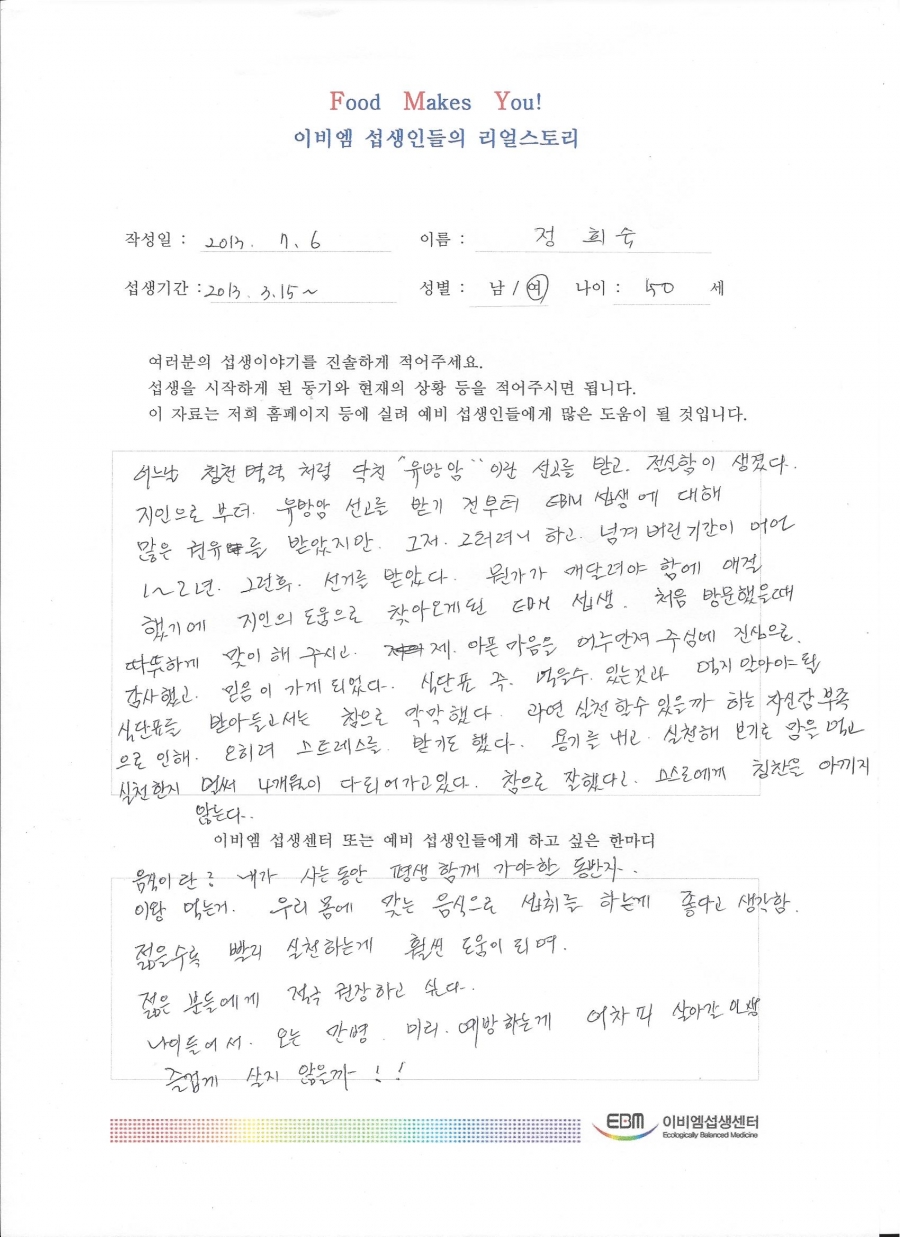 Food Makes You!
이비엠 섭생인들의 리얼스토리
작성일 : 2013. 7. 6 이름 : 정 희 숙
섭생기간 : 2013. 3. 15 ~ 성별 : 남 / 여 나이 : 50 세
여러분의 섭생이야기를 진솔하게 적어주세요.
섭생을 시작하게 된 동기와 현재의 상황 등을 적어주시면 됩니다.
이 자료는 저희 홈페이지 등에 실려 예비 섭생인들에게 많은 도움이 될 것입니다.
어느날 청천벽력 처럼 닥친 "유방암" 이란 선고를 받고. 전신할이 생겼다.
지인으로 부터. 유방암 선고를 받기 전부터 EBM 섭생에 대해
많은 권유를 받았지만. 그저. 그러려니 하고. 넘겨 버린 기간이 어언
1~2년. 그런후. 선거를 받았다. 뭔가가 매달려야 함에 애걸
했기에 지인의 도움으로 찾아오게된 EBM 섭생. 처음 방문했을때
따뜻하게 맞이 해 주시고. 제. 아픈 마음을 어루만져 주심에 진심으로.
감사했고. 믿음이 가게 되었다. 식단표 즉. 먹을수. 있는것과 먹지 말아야 될
식단표를 받아들고서는 참으로 막막했다. 과연 실천할수 있을까 하는 자신감 부족
으로 인해. 오히려 스트레스를. 받기도 했다. 용기를 내고. 실천해 보기로 맘을 먹고
실천한지 벌써 4개월이 다되어가고있다. 참으로 잘했다고. 스스로에게 칭찬을 아끼지
않는다.
이비엠 섭생센터 또는 예비 섭생인들에게 하고 싶은 한마디
음식이란 : 내가 사는동안 평생 함께 가야한 동반자.
이왕 먹는거. 우리 몸에 맞는 음식으로 섭취를 하는게 좋다고 생각함.
젊을수록 빨리 실천하는게 훨씬 도움이 되며.
젊은 분들에게 적극 권장하고 싶다.
나이들어서. 오는 만병. 미리. 예방하는게 어차피 살아갈 인생
즐겁게 살지 않을까 ! !
EBM 이비엠섭생센터
Ecologically Balanced Medicine